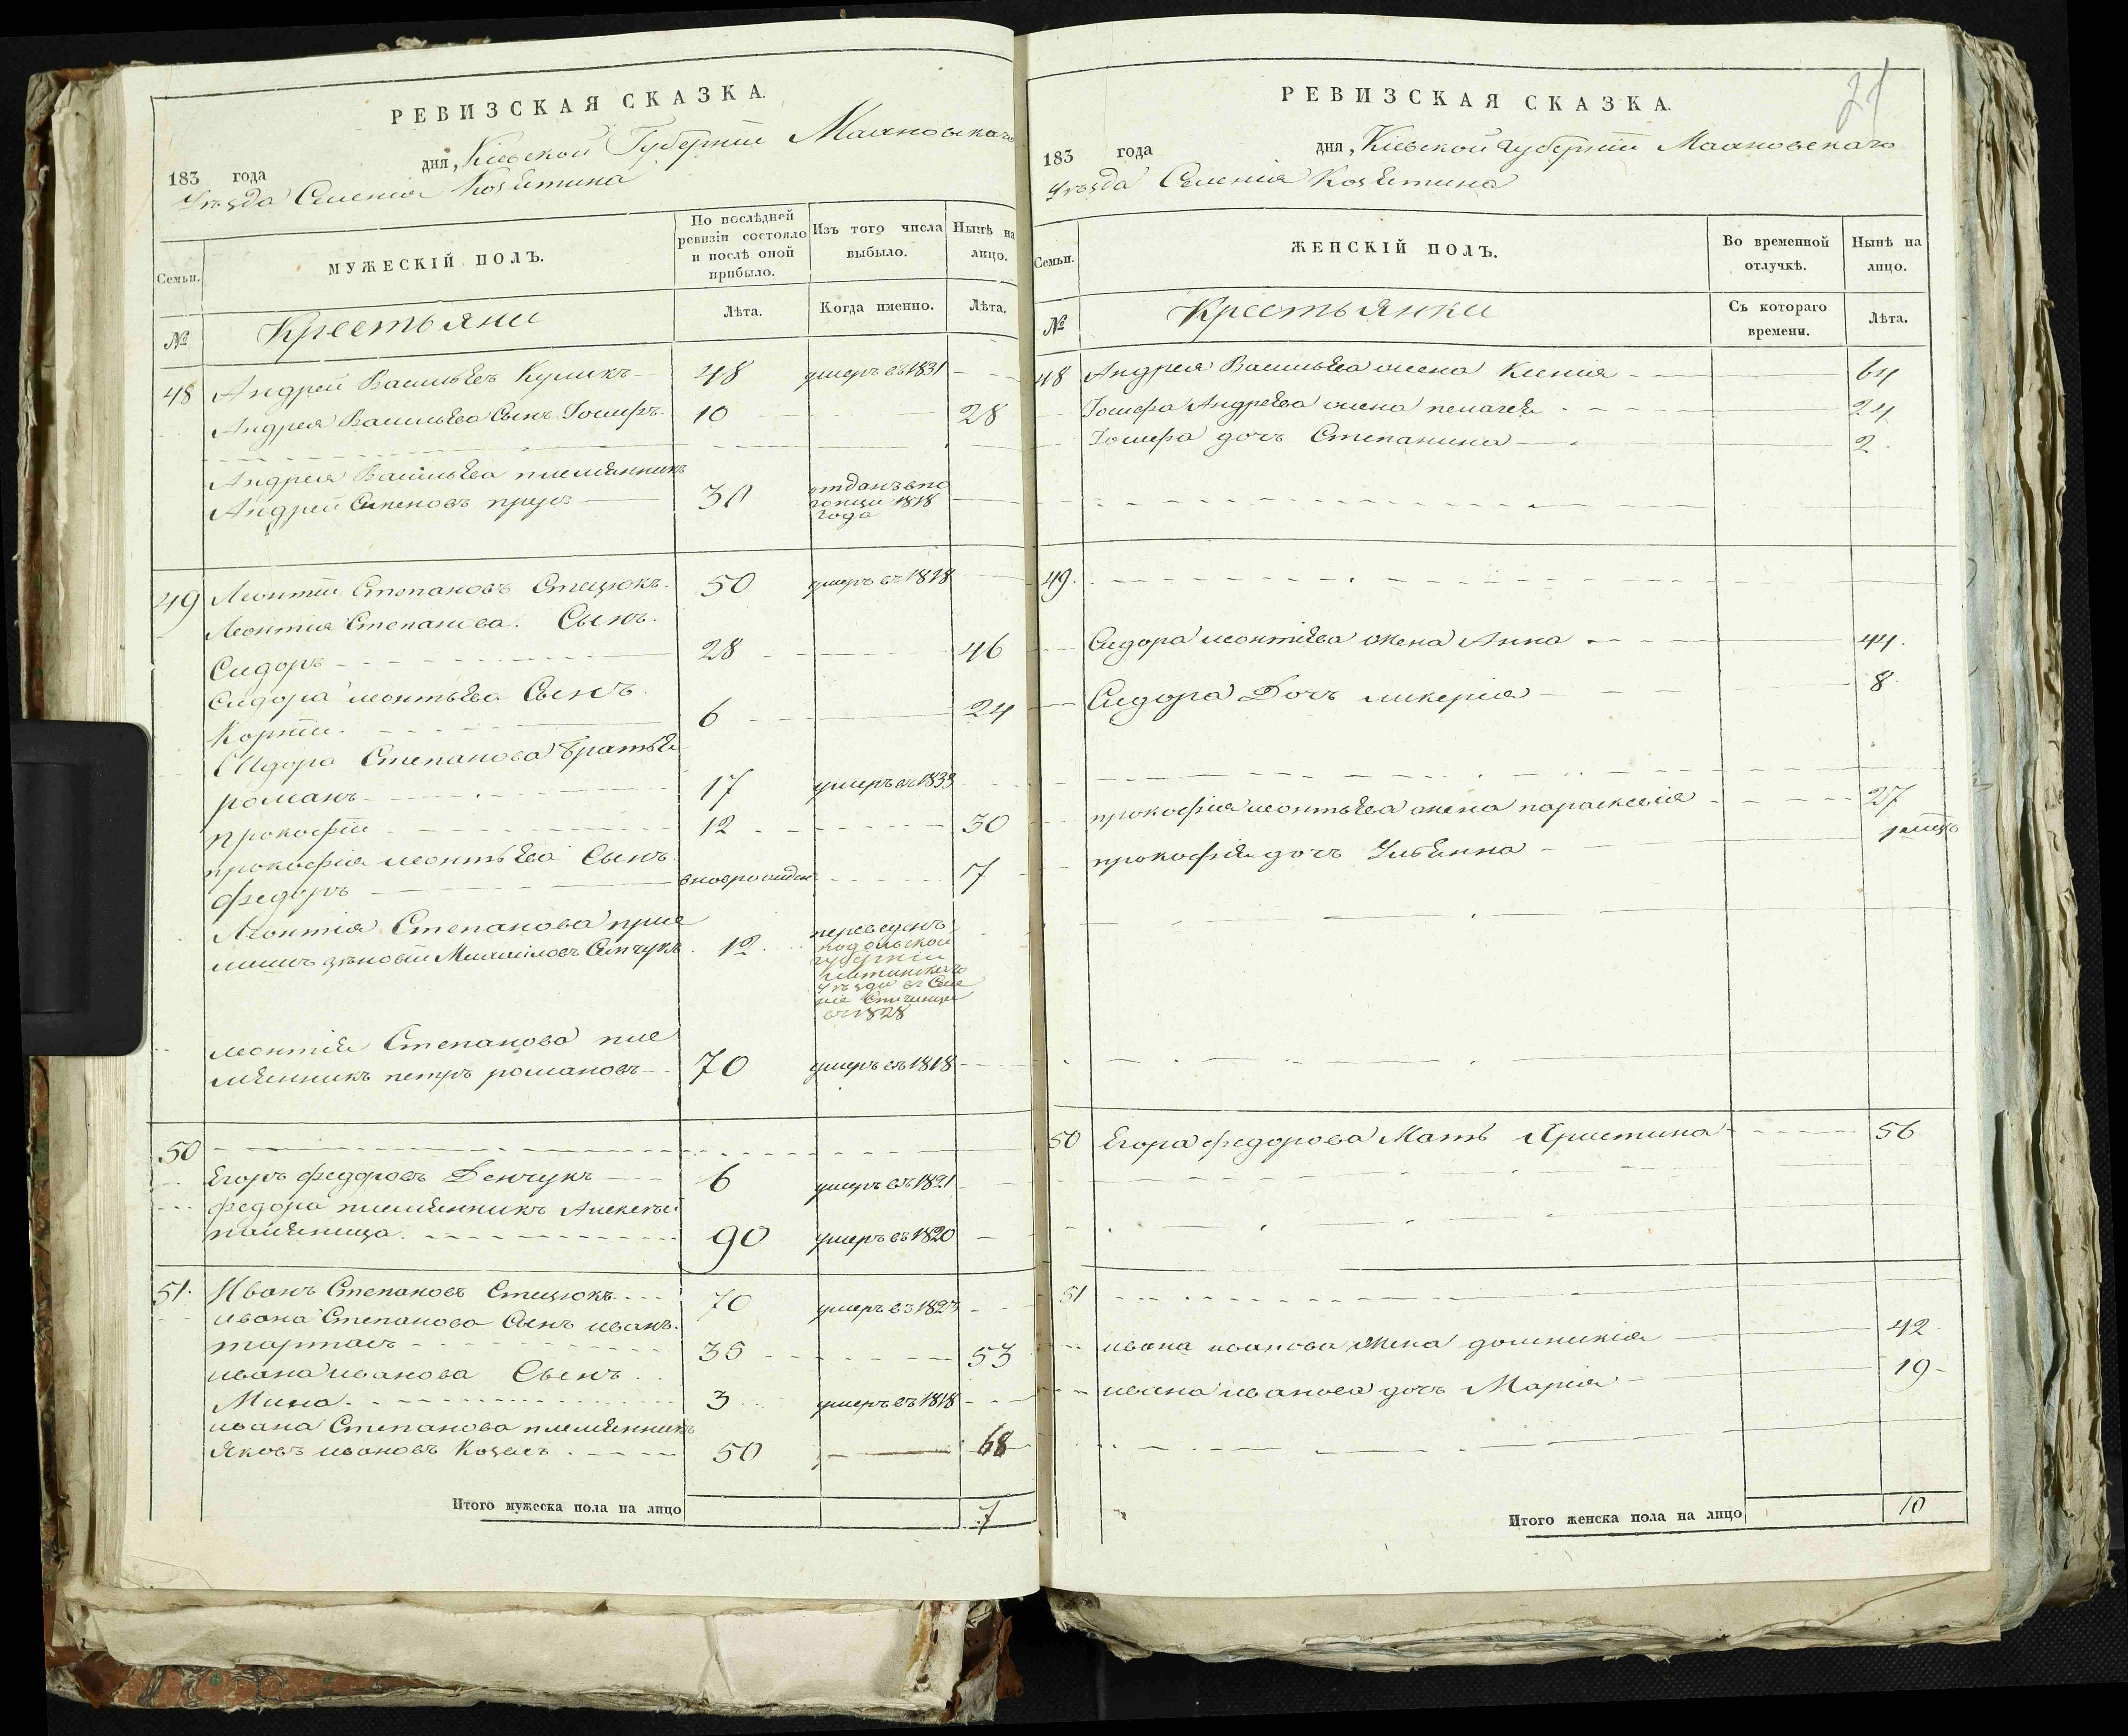 РЕВИЗСКАЯ СКАЗКА.
183 года дня, Кіевской Губерніи Махновскаго
Уѣзда Селенія Козятина
Семьи.
МУЖЕСКІЙ ПОЛЪ.
По послѣдней
ревизіи состояло
и послѣ оной
прибыло.
Изъ того числа
выбыло.
Нынѣ на
лицо.
№
Крестьяни
Лѣта.
Когда именно.
Лѣта.
48 Андрей Васильевъ Куликъ 48 умеръ въ 1831
Андрея Васильева Сынъ Іосифъ 10 28
Андрея Васильева племянникъ
Андрей 30 отданъ
1818
года
49 Леонтій Степановъ Стецюкъ 50 умеръ въ 1818
Леонтія Степанова Сынъ
Сидоръ 28 46
Сидора леонтьева Сынъ
Корній 6 24
Сидора Степанова братья
романъ 17 умеръ въ 1833
прокофій 12 30
прокофія леонтьева Сынъ
федоръ вноврожден 7
Леонтія Степанова прие
мишъ зѣновій Михайловъ 12 переведенъ
подольской
губерніи
уѣзда въ Селе
ніе
въ 1828
леонтія Степанова пле
мянникъ петръ романовъ 70 умеръ въ 1818
50
Егоръ федоровъ Денчукъ 6 умеръ въ 1821
федора племянникъ Алексей
90 умеръ въ 1820
51 Иванъ Степановъ Стецюкъ 70 умеръ въ 1823
ивана Степанова Сынъ иванъ
35 53
ивана иванова Сынъ
Мина 3 умеръ въ 1818
ивана Степанова племянникъ
яковъ ивановъ 50 68
Итого мужеска пола на лицо 7
21
РЕВИЗСКАЯ СКАЗКА.
183 года дня, Кіевской губерніи Махновскаго
Уѣзда Селенія Козятина
Семьи.
ЖЕНСКІЙ ПОЛЪ.
Во временной
отлучкѣ.
Нынѣ на
лицо.
№
Крестьянки
Съ котораго
времени.
Лѣта.
48 Андрея Васильева жена Ксенія 64
Іосифа Андреева жена пелагея 24
Іосифа дочь Степанина 2
49
Сидора леонтіева жена Анна 44
Сидора Дочь ликерія 8
прокофія леонтьева жена параскевія 27
прокофія дочь Ульянна
50 Егора федорова Мать Христина 56
51
ивана иванова жена доминикія 42
ивана иванова дочь Марія 19
Итого женска пола на лицо 10